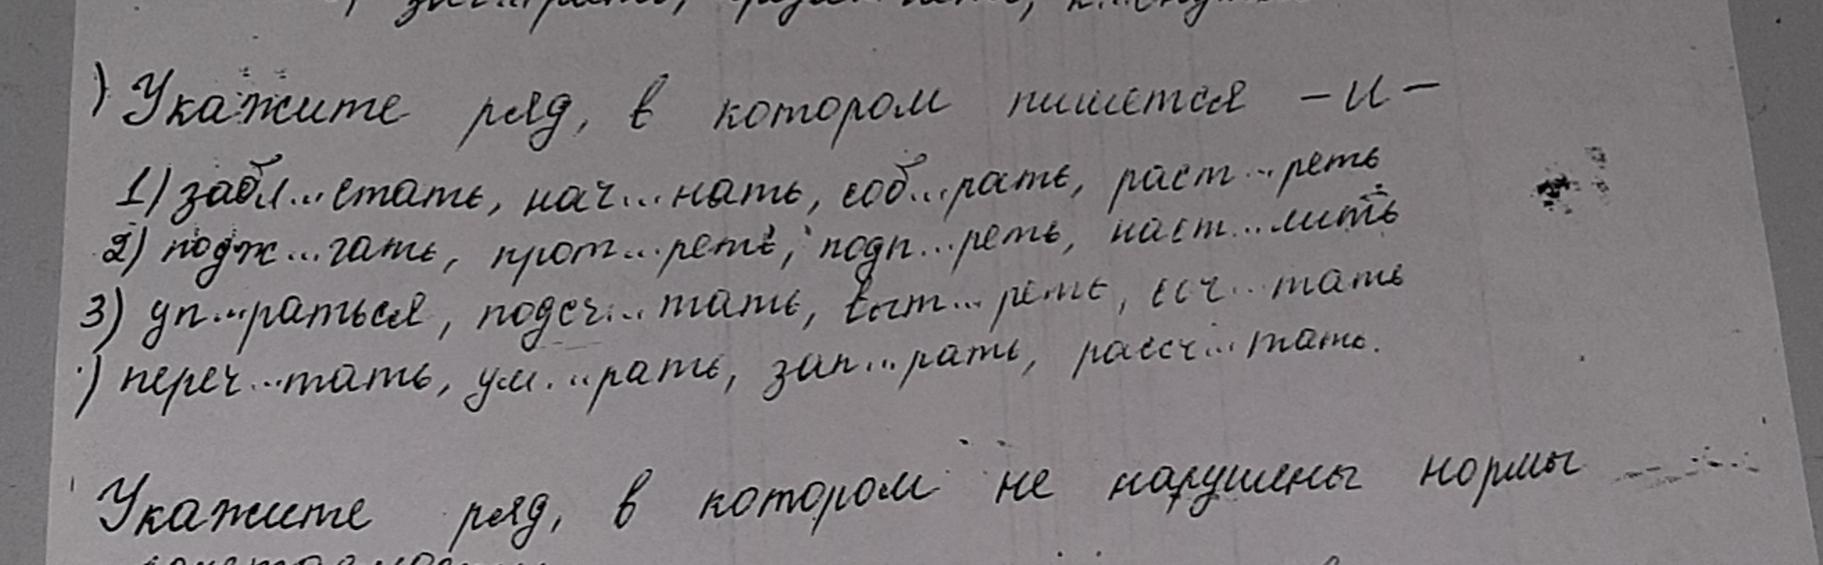 ) Укажите ряд, в котором пишется -и-
1) забл...стать, нач...нать, соб...рать, раст...реть
2) подж...гать, прот...реть, подп...реть, наст...лить
3) уп...раться, подсч...тать, выт...реть, сч...тать
) переч...тать, ум...рать, зап...рать, рассч...тать.
Укажите ряд, в котором не нарушены нормы